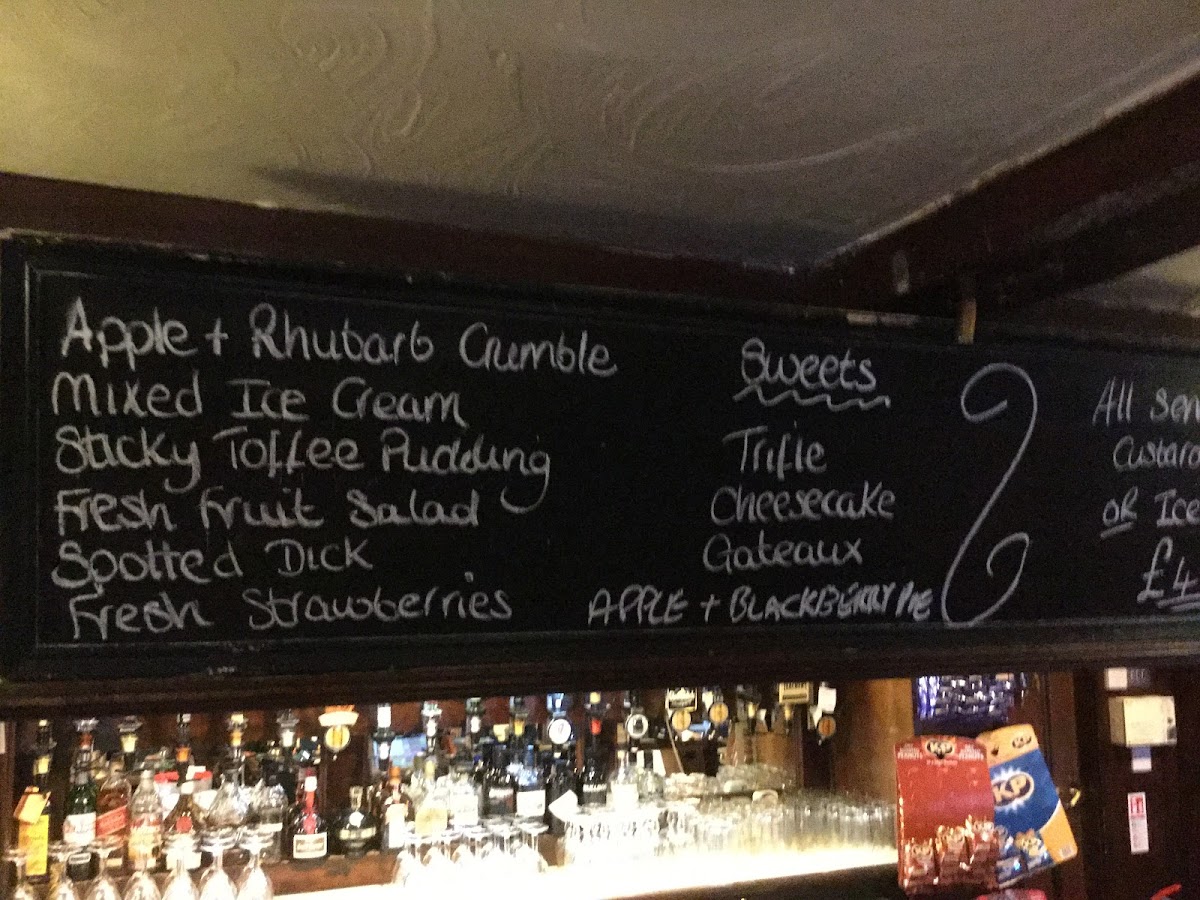 Apple + Rhubarb Crumble
Mixed Ice Cream
Sticky Toffee Pudding
Fresh Fruit Salad
Spotted Dick
Fresh Strawberries
Sweets
Trifle
Cheesecake
Gateaux
APPLE + BLACKBERRY PIE
All Ser
Custard
OR Ice
£4
KP
KP
KP